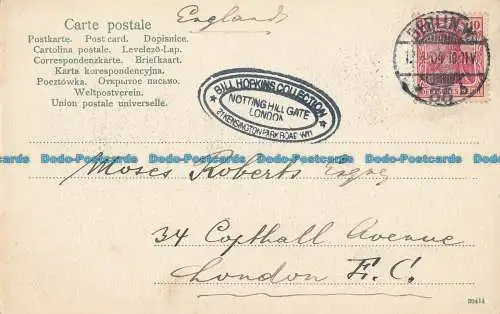 Carte postale
Postkarte. Post card. Dopisnice.
Cartolina postale. Levelező-Lap.
Correspondenzkarte. Briefkaart.
Karta korespondencyjna.
Pocztówka. Открытое письмо.
Weltpostverein.
Union postale universelle.
England
BILL HOPKINS COLLECTION
NOTTING HILL GATE
LONDON
21 KENSINGTON PARK ROAD W11
BERLIN W.
10
Dodo-Postcards Dodo-Postcards Dodo-Postcards Dodo-Postcards Dodo-Postcards Dodo-Postcards
Moses Roberts
34 Copthall Avenue
London E.C.